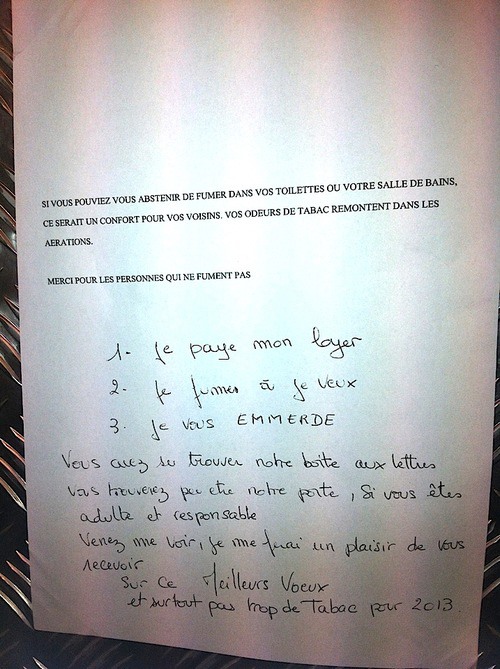 SI VOUS POUVIEZ VOUS ABSTENIR DE FUMER DANS VOS TOILETTES OU VOTRE SALLE DE BAINS,
CE SERAIT UN CONFORT POUR VOS VOISINS. VOS ODEURS DE TABAC REMONTENT DANS LES
AERATIONS.
MERCI POUR LES PERSONNES QUI NE FUMENT PAS
1- Je paye mon loyer
2- Je fumes où je veux
3- Je vous EMMERDE
Vous avez su trouver notre boîte aux lettres
Vous trouverez peu etre notre porte, Si vous êtes
adulte et responsable
Venez me voir, je me ferai un plaisir de vous
recevoir
Sur Ce Meilleurs Voeux
et surtout pas trop de Tabac pour 2013.